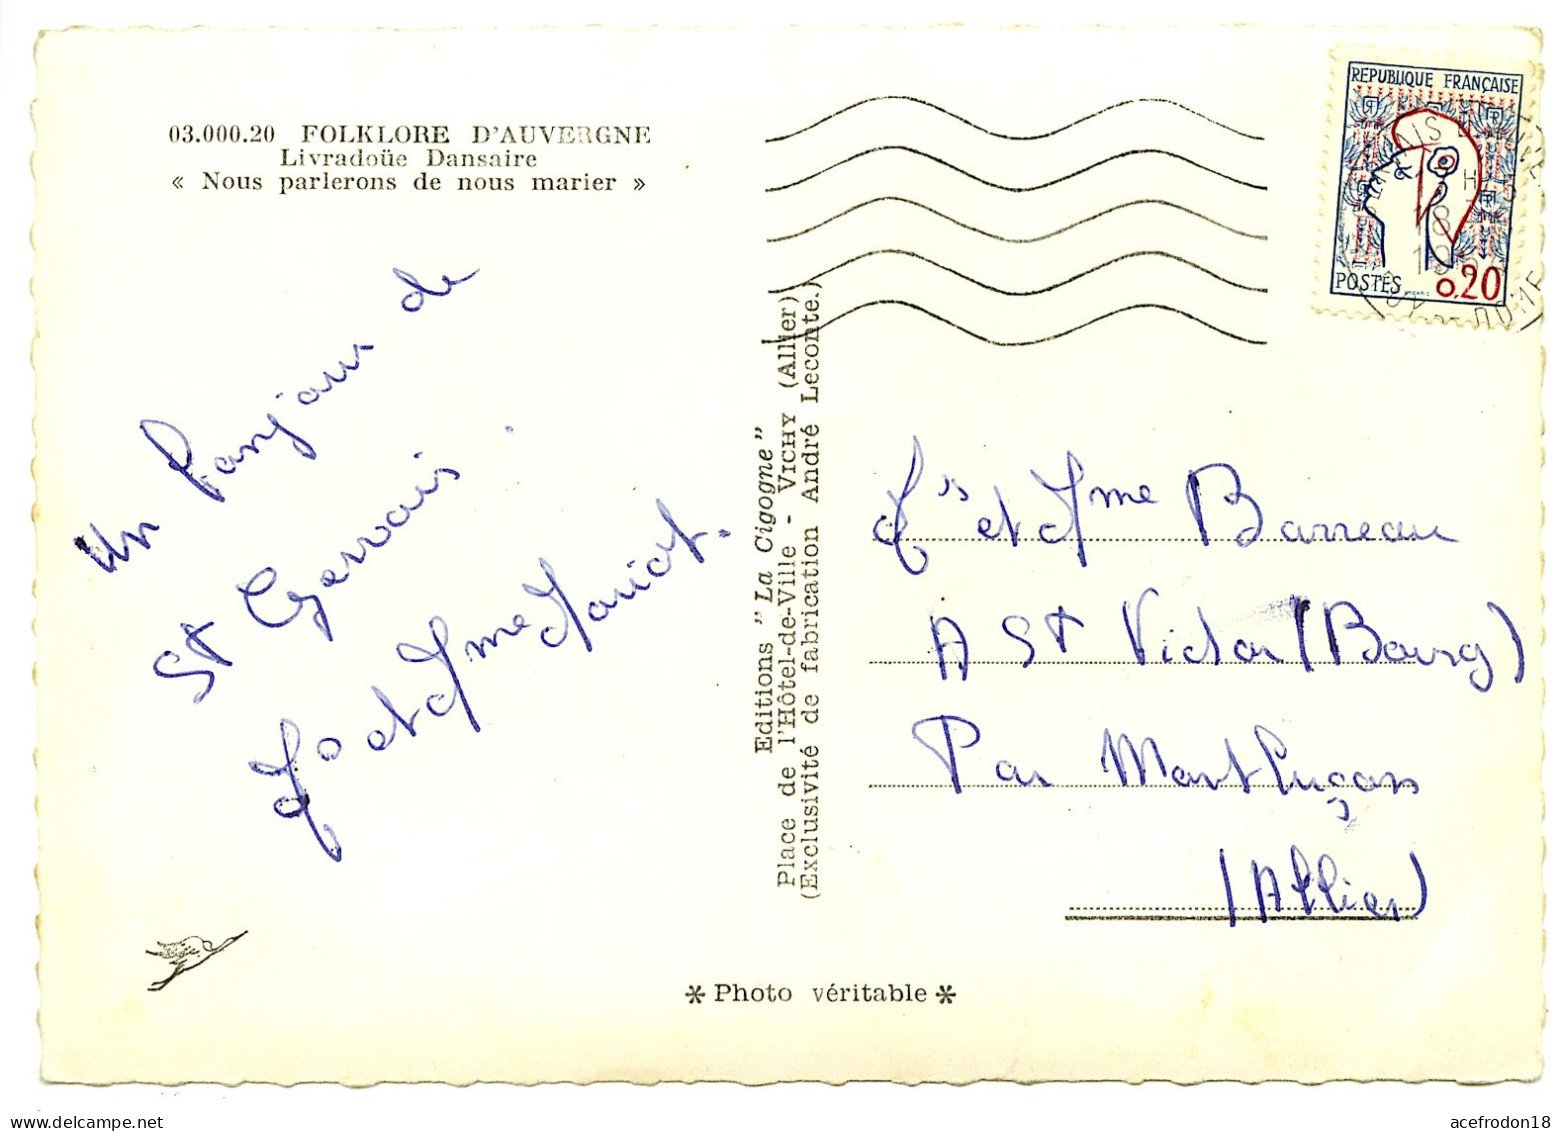 03.000.20 FOLKLORE D'AUVERGNE
Livradoüe Dansaire
« Nous parlerons de nous marier »
Un bonjour de
St Gervais.
et Mme Mariot.
Editions "La Cigogne"
Place de l'Hôtel-de-Ville - VICHY (Allier)
(Exclusivité de fabrication André Leconte.)
REPUBLIQUE FRANÇAISE
POSTES 0,20
et Mme Barreau
A St Victor (Bourg)
Par Montluçon
(Allier)
* Photo véritable *
acefrodon18